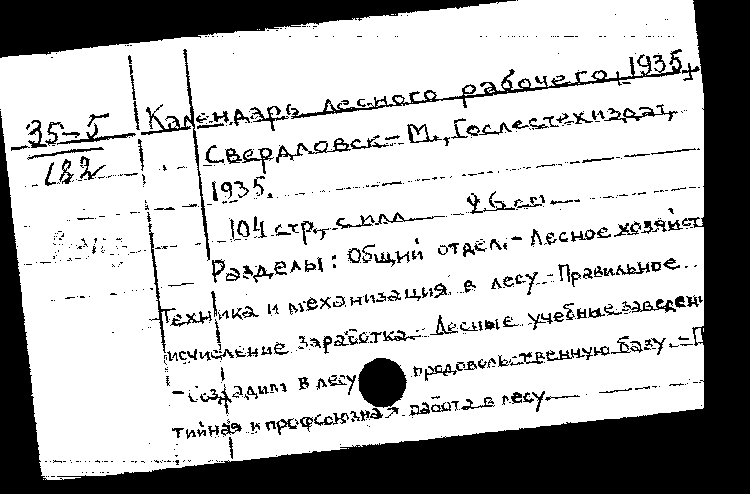 35-5
182
Календарь лесного рабочего, 1935,
Свердловск-М., Гослестехиздат,
1935.
104 стр., с илл. 26 см.
Разделы: Общий отдел. - Лесное хозяйст
Техника и механизация в лесу - Правильное
исчисление заработка. - Лесные учебные заведен
- Создадим в лесу продовольственную базу. - П
тийная и профсоюзная работа в лесу.